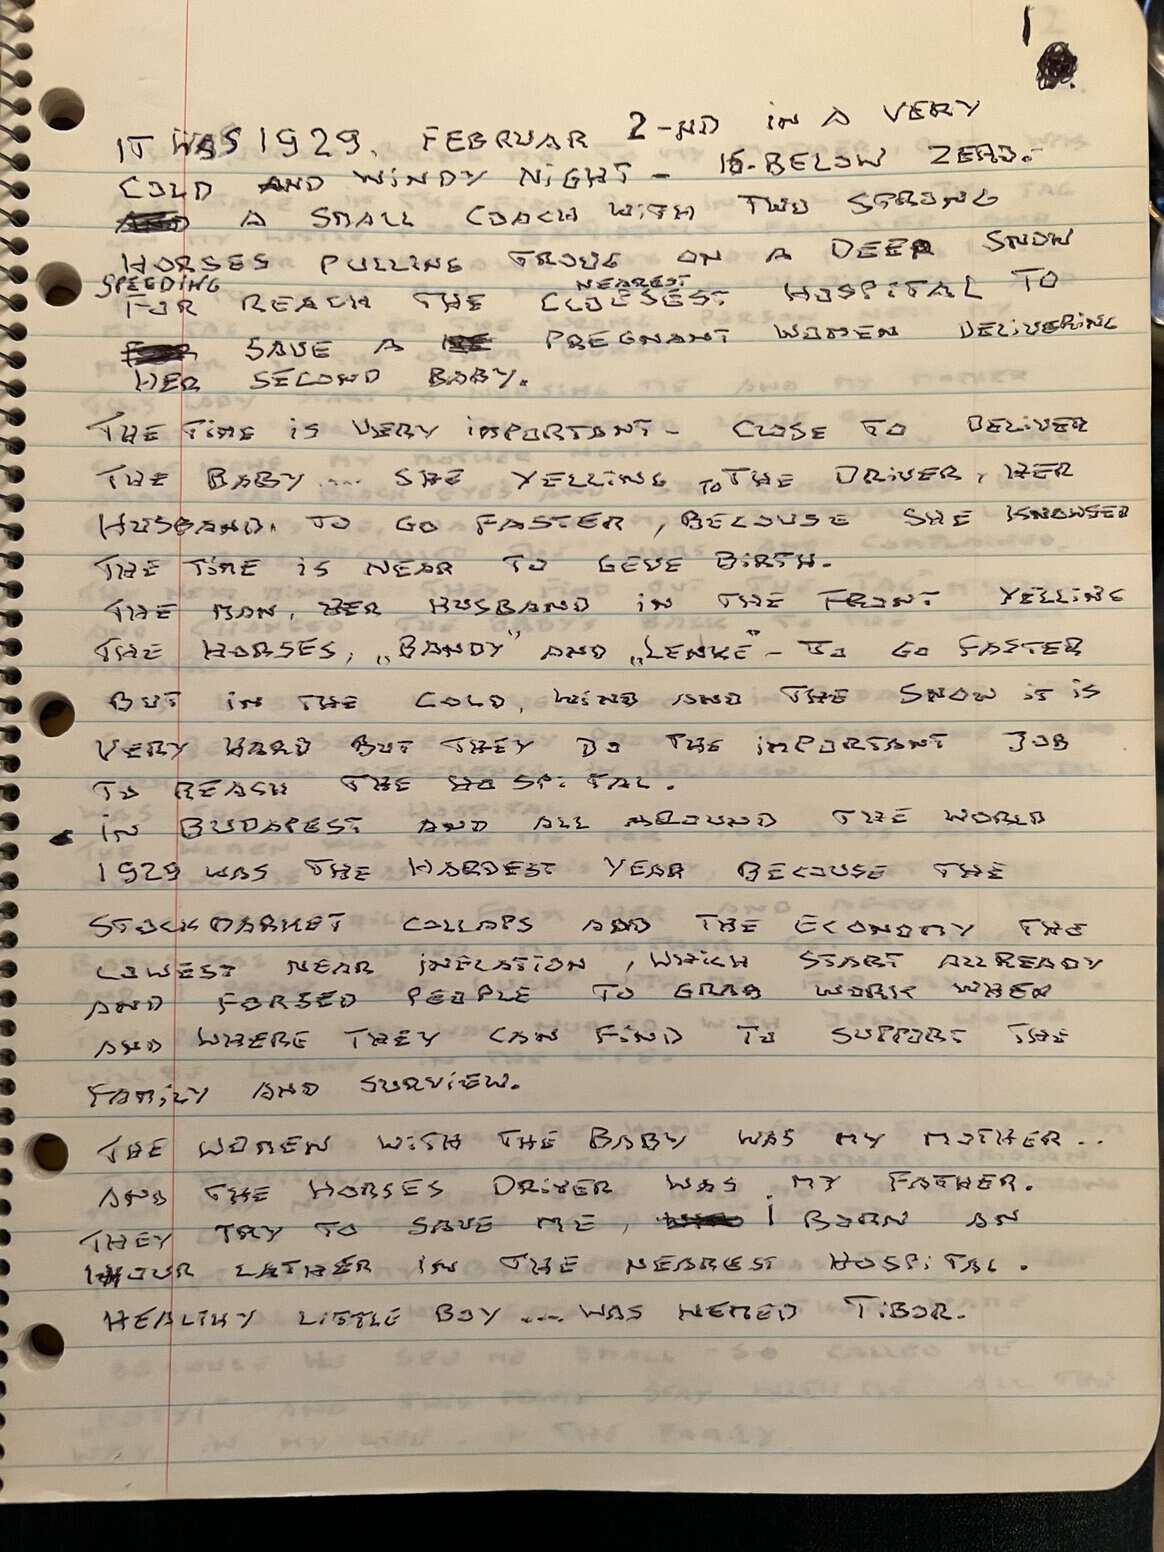 1
IT WAS 1929. FEBRUAR 2-ND IN A VERY
COLD AND WINDY NIGHT - 16-BELOW ZERO.-
A SMALL COACH WITH TWO STRONG
HORSES PULLING TROUG ON A DEEP SNOW
SPEEDING NEAREST
FOR REACH THE CLOESEST HOSPITAL TO
SAVE A PREGNANT WOMEN DELIVERING
HER SECOND BABY.
THE TIME IS VERY IMPORTANT - CLOSE TO DELIVER
THE BABY .... SHE YELLING TO THE DRIVER, HER
HUSBAND. TO GO FASTER, BECOUSE SHE KNOWSED
THE TIME IS NEAR TO GEVE BIRTH.
THE MAN, HER HUSBAND IN THE FRONT YELLING
THE HORSES, „BANDY" AND „LENKE" - TO GO FASTER
BUT IN THE COLD, WIND AND THE SNOW IT IS
VERY HARD BUT THEY DO THE IMPORTANT JOB
TO REACH THE HOSPITAL.
IN BUDAPEST AND ALL AROUND THE WORLD
1929 WAS THE HARDEST YEAR BECOUSE THE
STOCKMARKET COLLAPS AND THE ECONOMY THE
LOWEST NEAR INFLATION, WHICH START ALLREADY
AND FORSED PEOPLE TO GRAB WORK WHEN
AND WHERE THEY CAN FIND TO SUPPORT THE
FAMILY AND SURVIEW.
THE WOMEN WITH THE BABY WAS MY MOTHER..
AND THE HORSES DRIVER WAS MY FATHER.
THEY TRY TO SAVE ME, I BORN AN
HOUR LATHER IN THE NEAREST HOSPITAL.
HEALTHY LITTLE BOY .... WAS NEMED TIBOR.